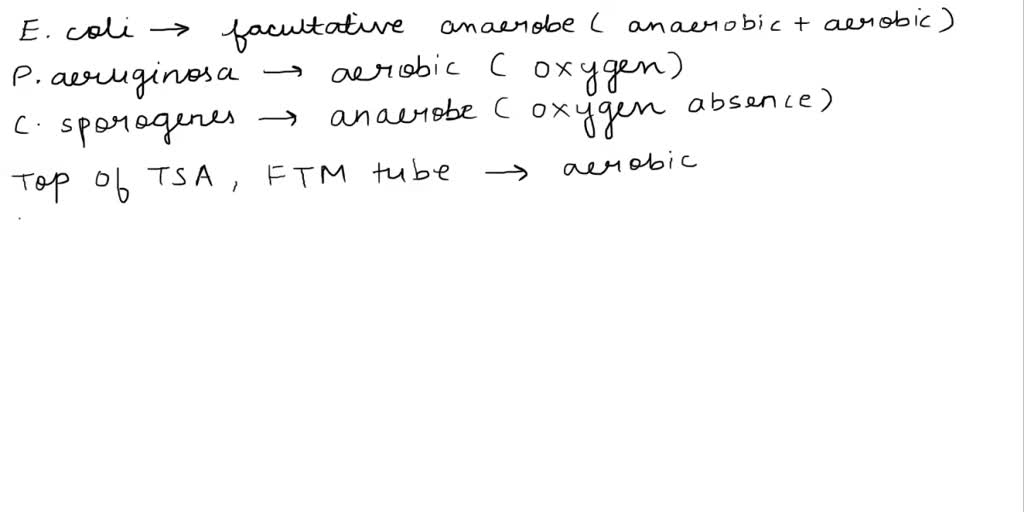 E. coli → facultative anaerobe ( anaerobic + aerobic )
P. aeruginosa → aerobic ( oxygen )
C. sporogenes → anaerobe ( oxygen absence )
Top of TSA, FTM tube → aerobic